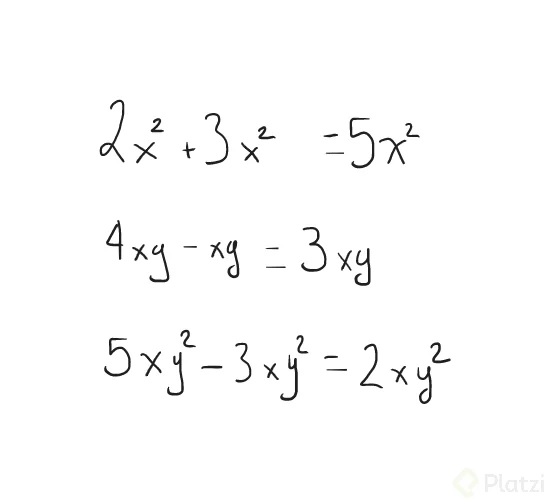 2x² + 3x² = 5x²
4xy - xy = 3xy
5xy² - 3xy² = 2xy²
Platzi